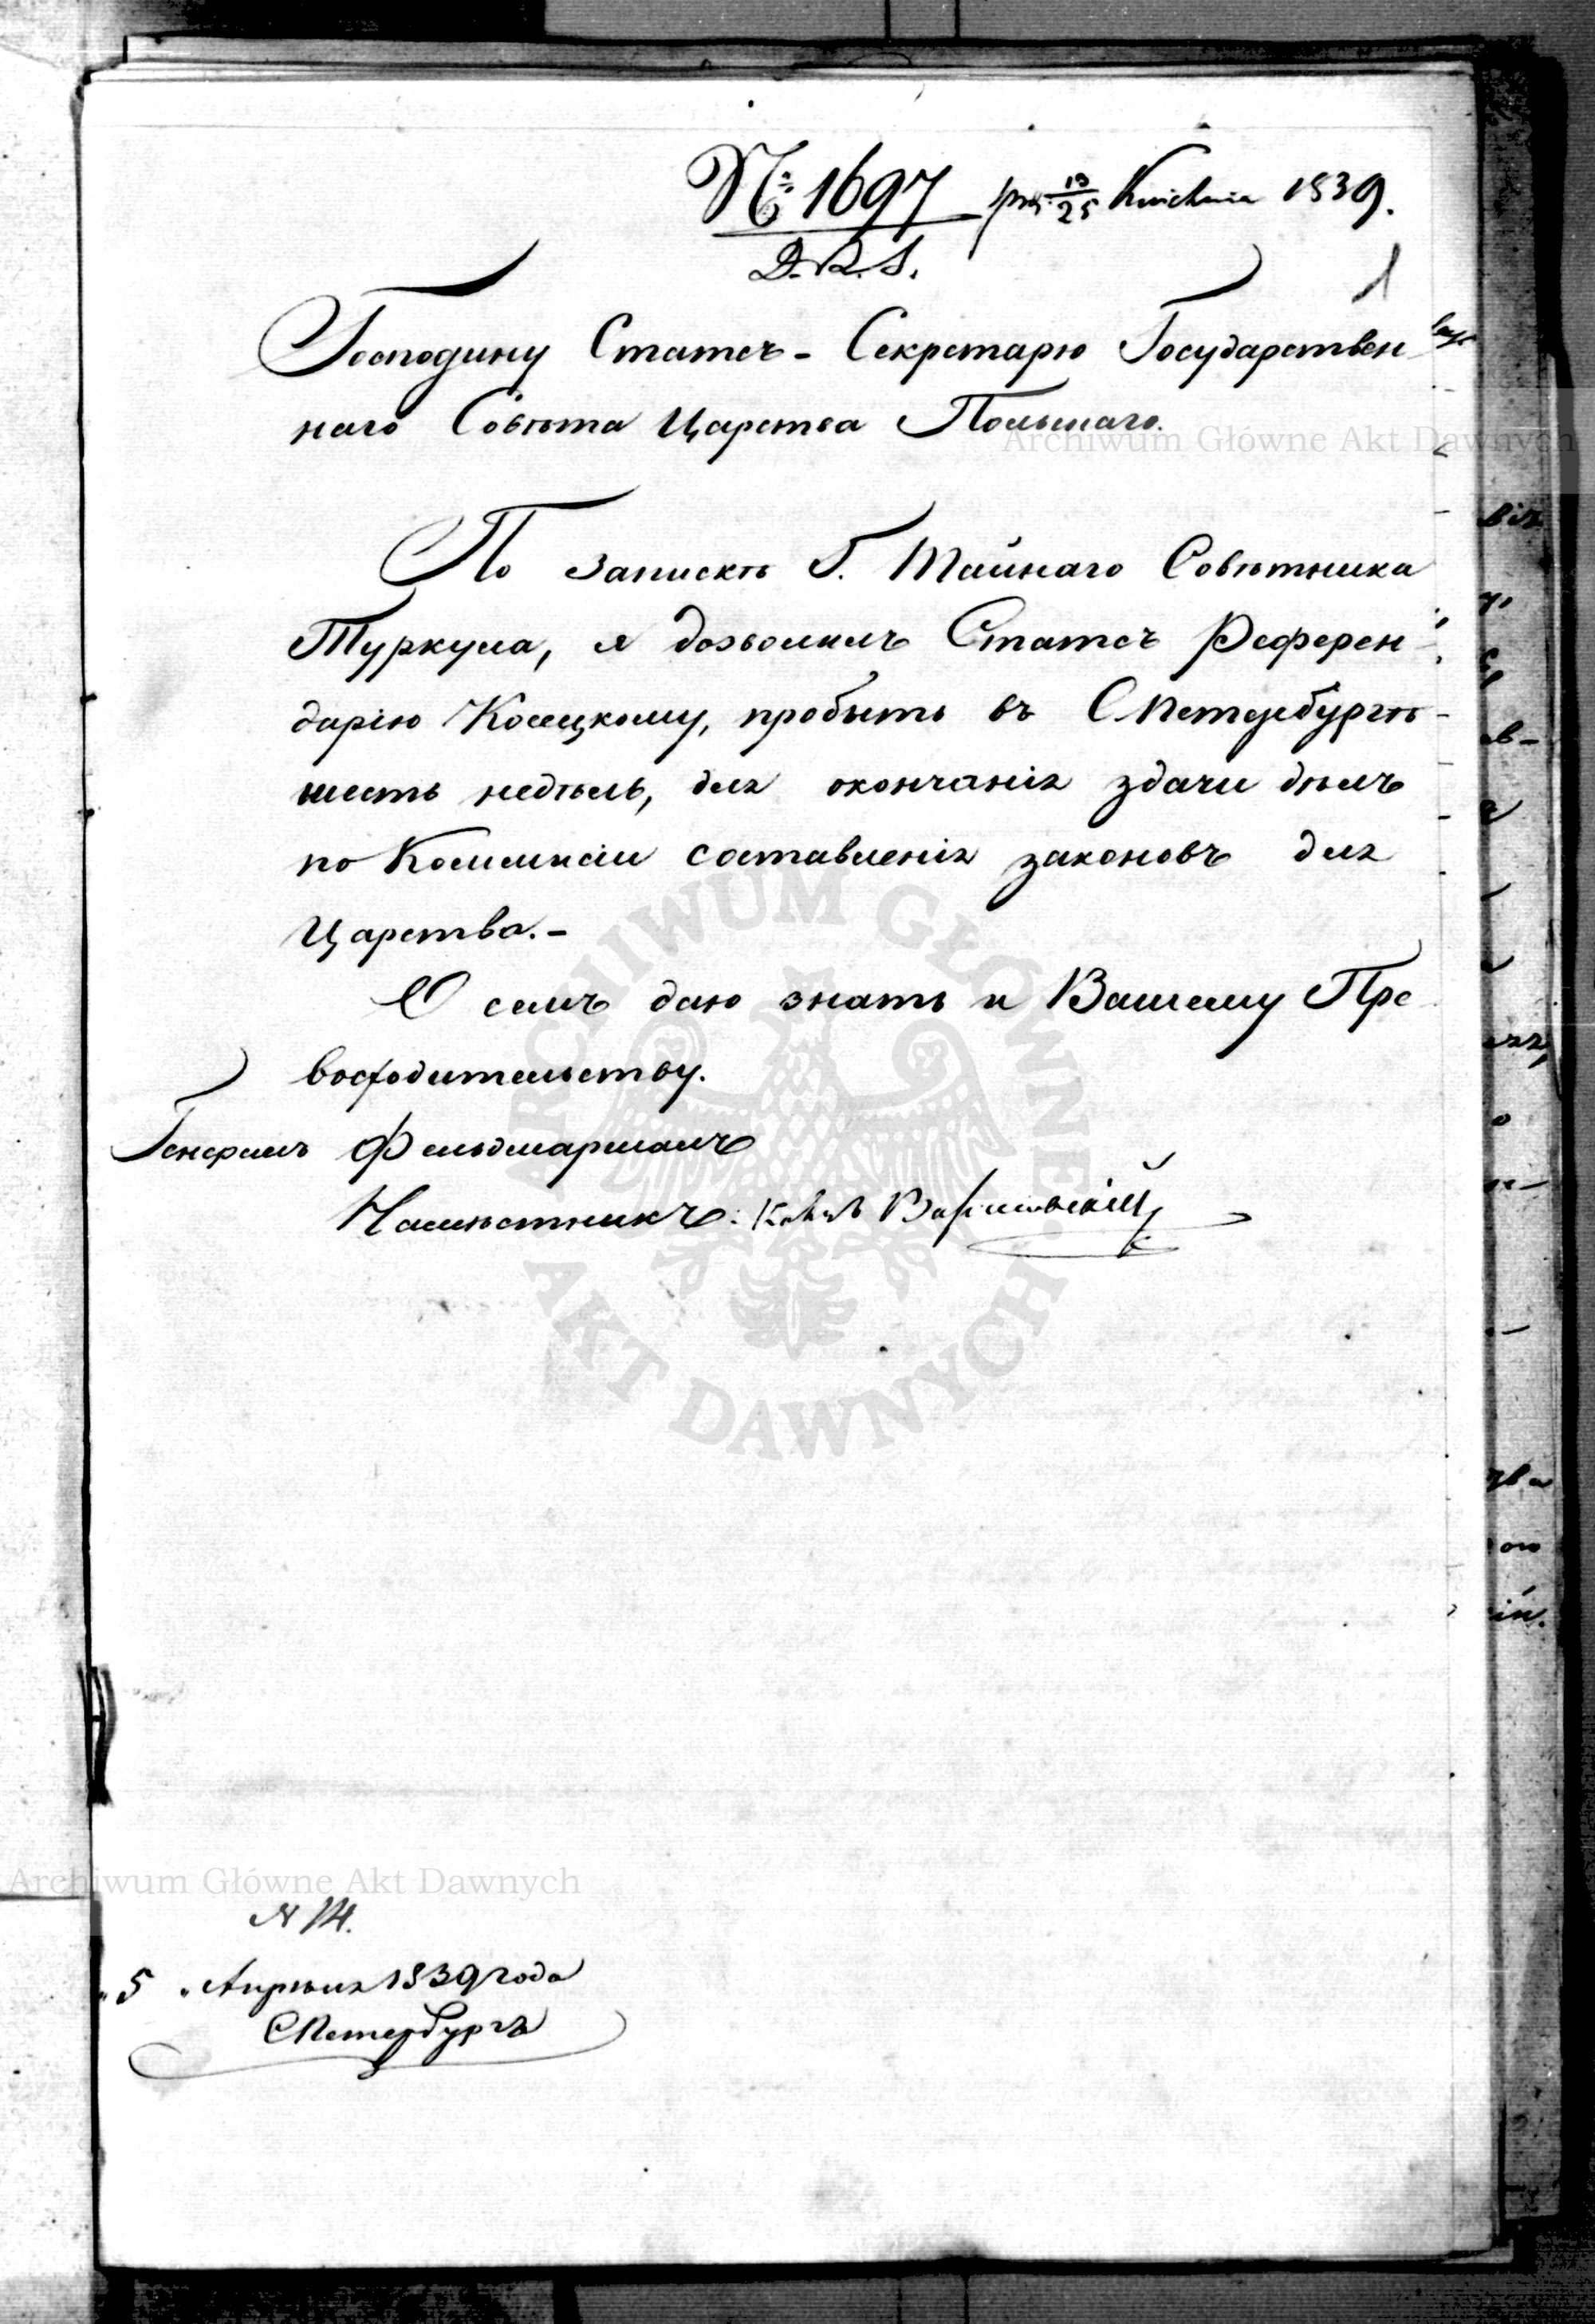 № 1697 prez. 13/25 Kwietnia 1839.
D.R.S.
1
Господину Статсъ-Секретарю Государствен
наго Совѣта Царства Польскаго.
Archiwum Główne Akt Dawnych
По запискѣ Г. Тайнаго Совѣтника
Туркула, я дозволилъ Статсъ Референ
дарію Косецкому, пробыть въ СПетербургѣ
шесть недѣль, для окончанія здачи дѣлъ
по Коммисіи составленія законовъ для
Царства.-
О семъ даю знать и Вашему Пре
восходительству.
Генералъ Фельдмаршалъ
Намѣстникъ: Князь Варшавскій
ARCHIWUM GŁÓWNE AKT DAWNYCH
Archiwum Główne Akt Dawnych
№ 14.
„5„ Апрѣля 1839 года
СПетербургъ